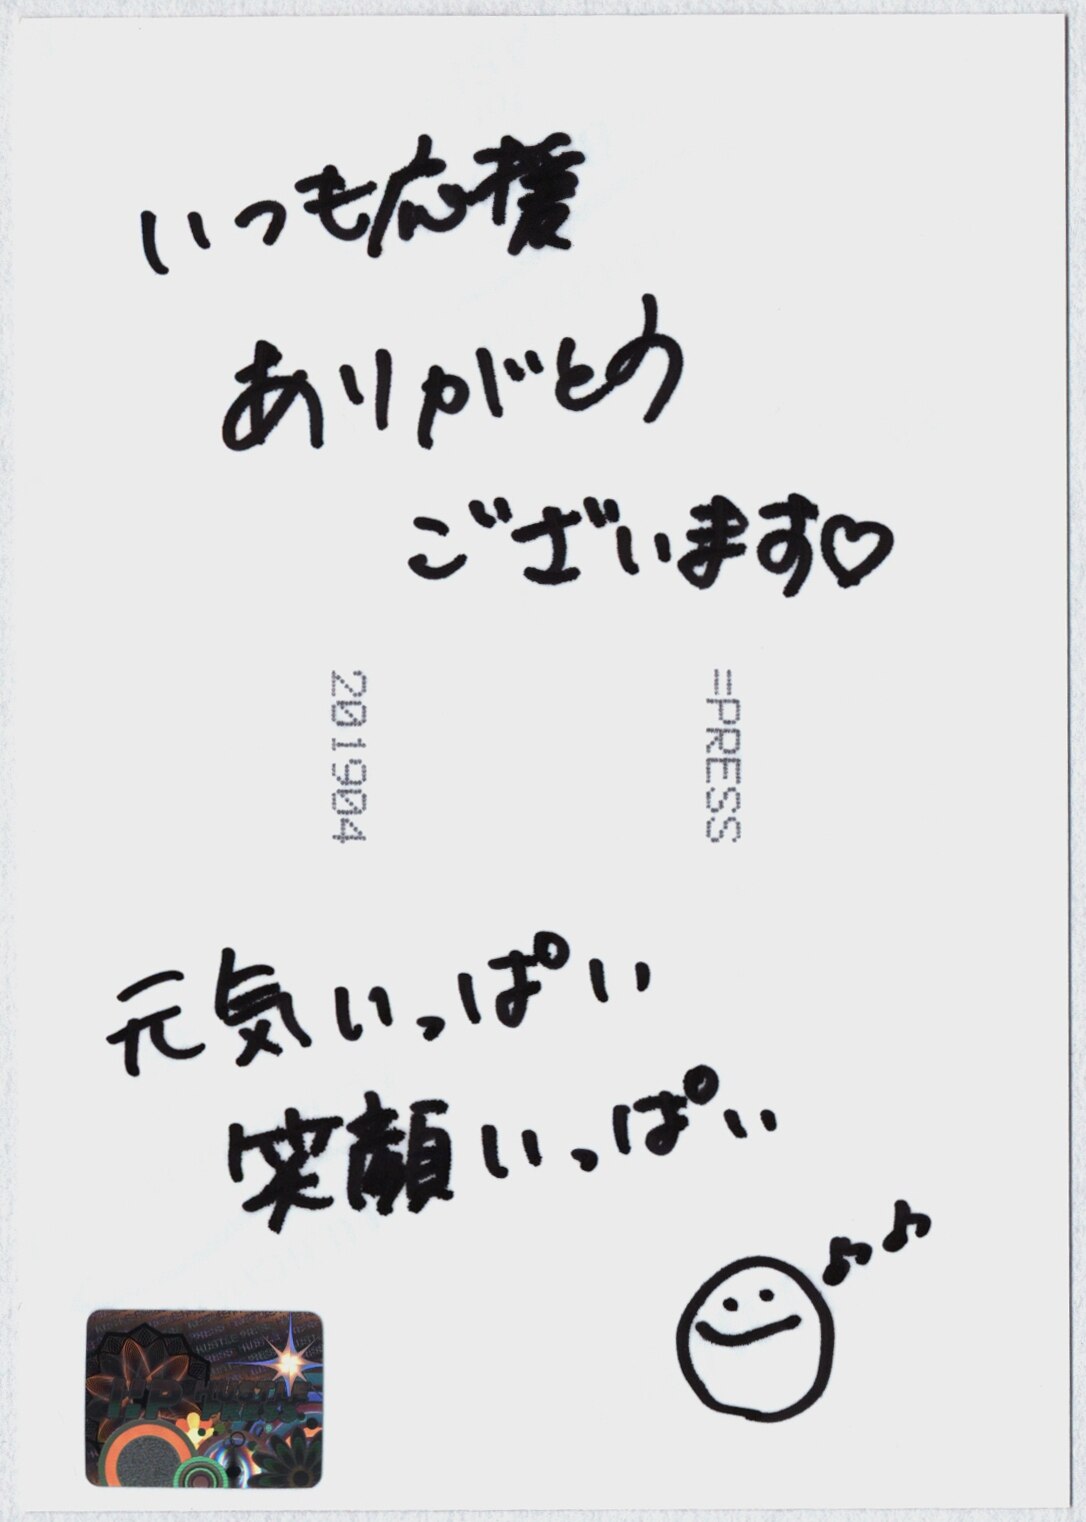 いつも応援
ありがとの
ございます♡
201904
=PRESS
元気いっぱい
笑顔いっぱい
♪♪